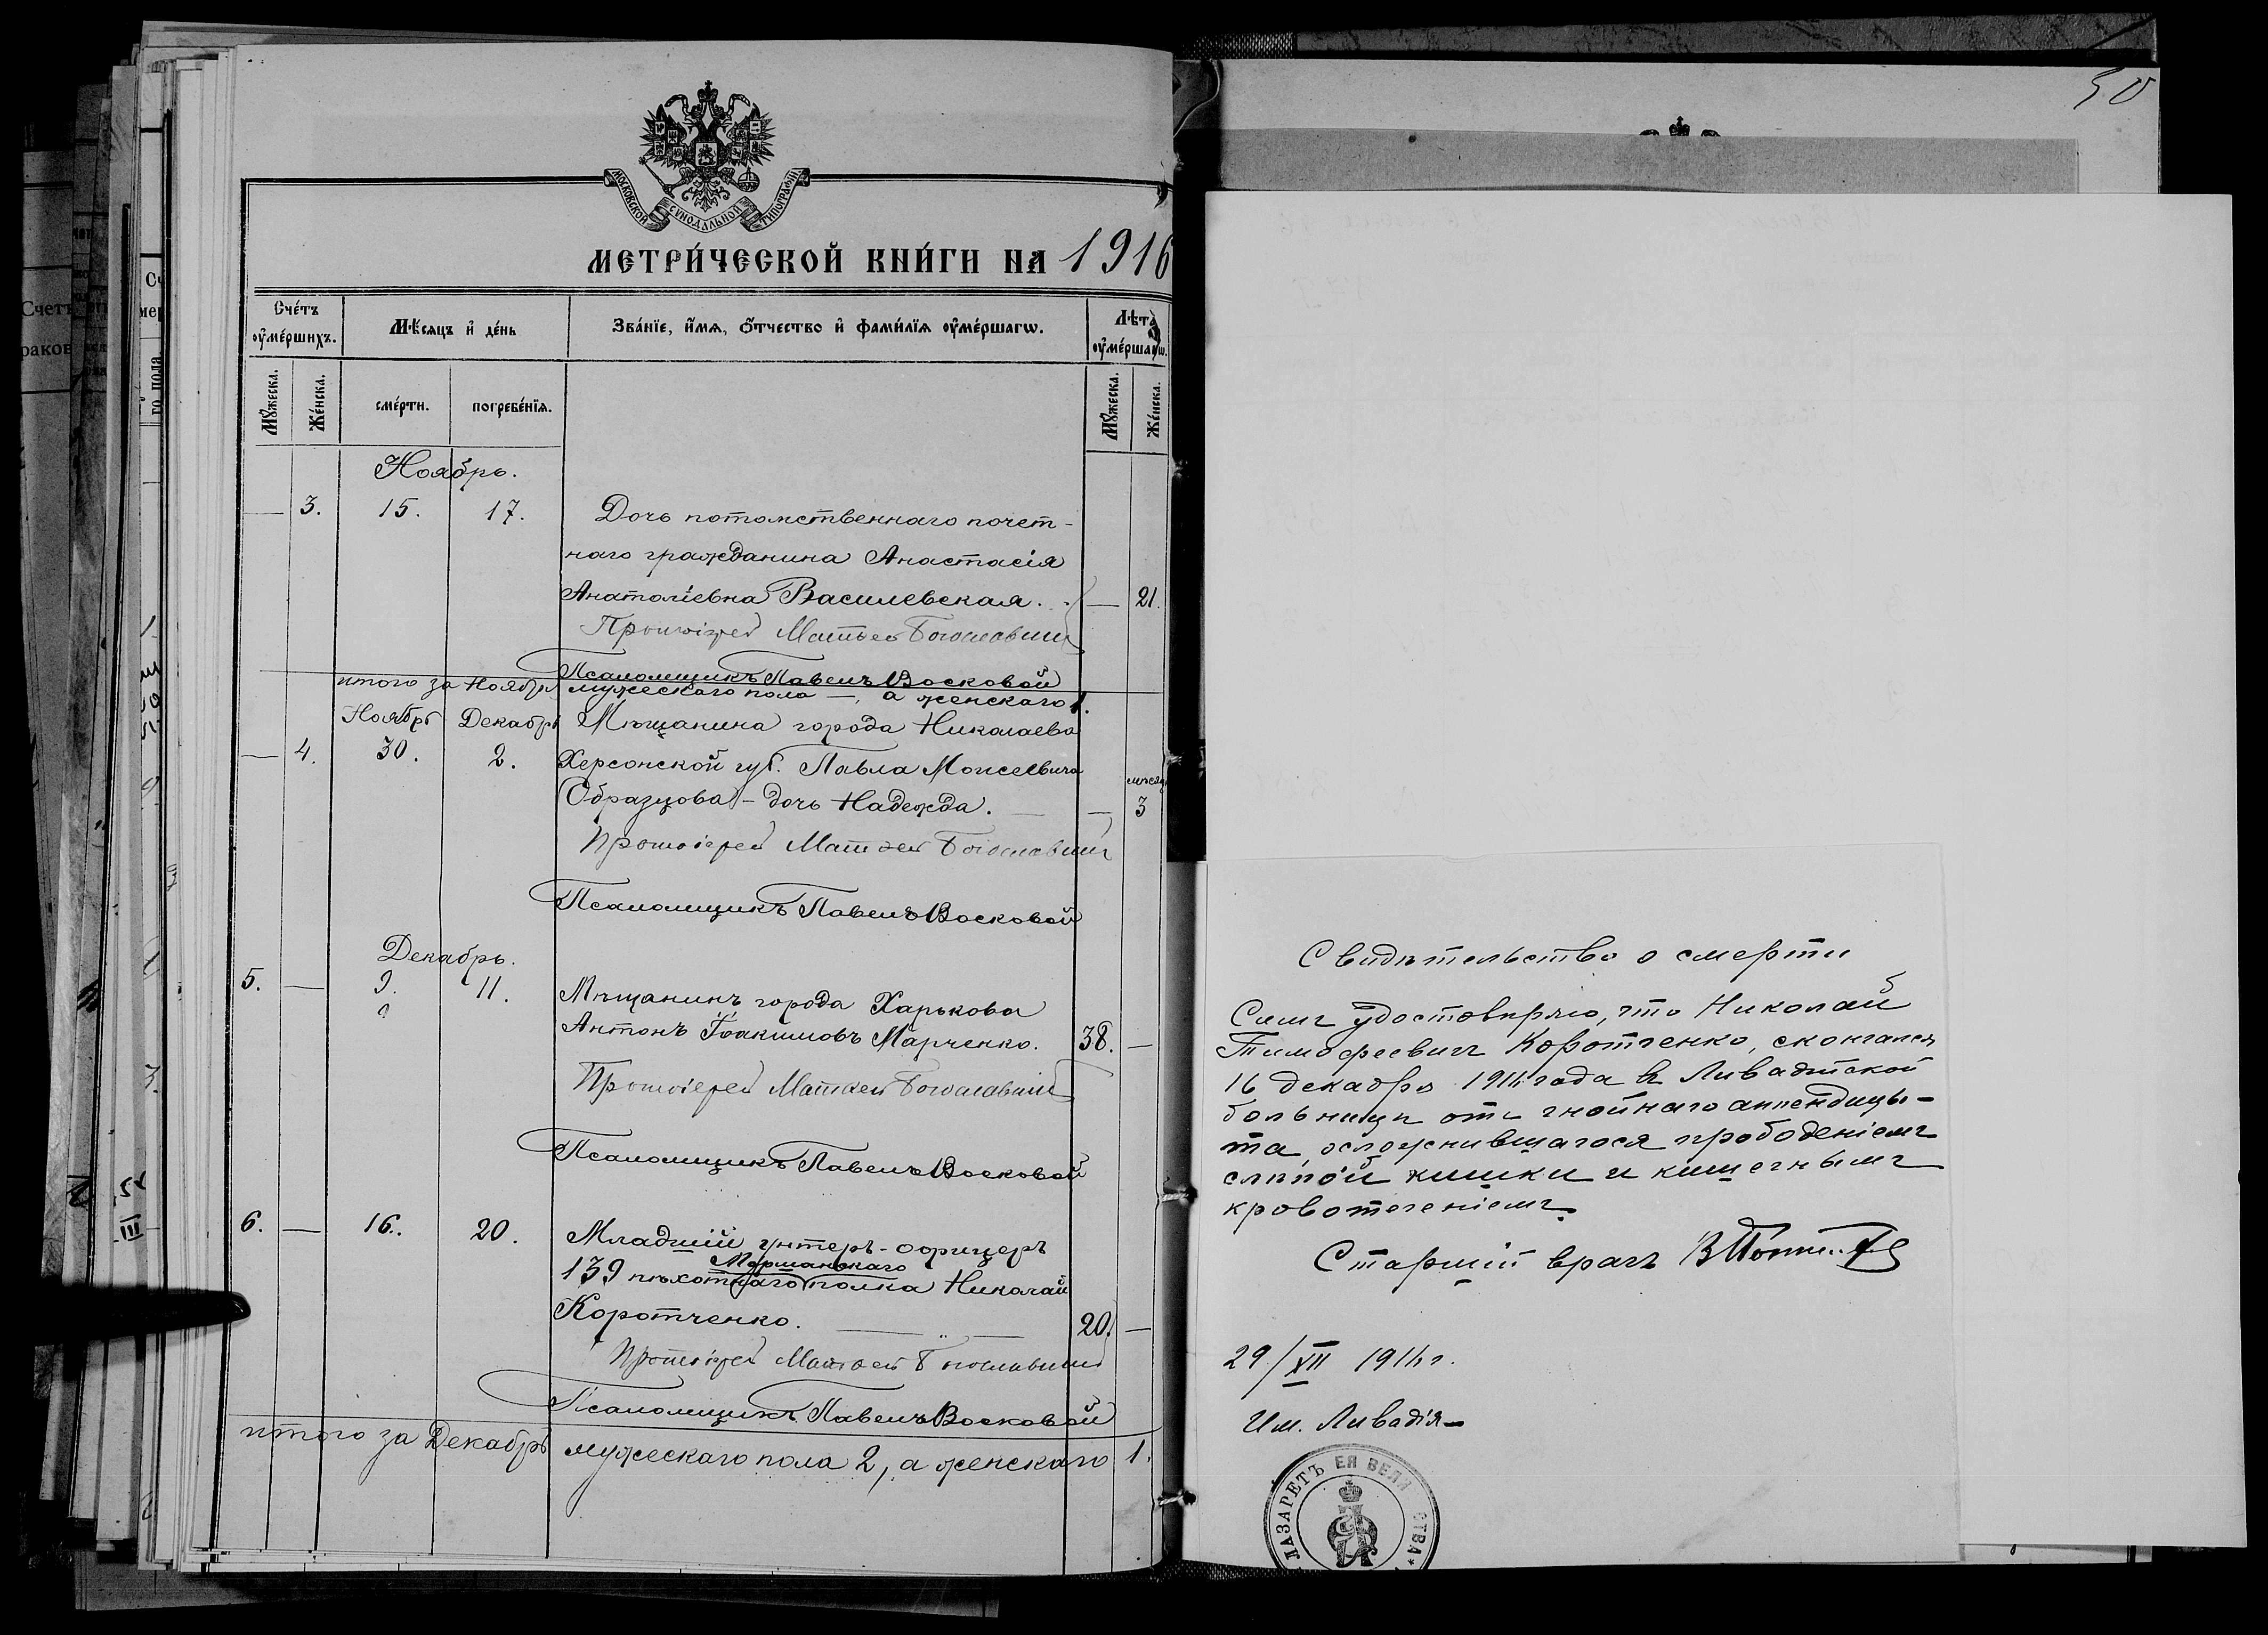 МОСКОВСКОЙ СѴНОДАЛЬНОЙ ТИПОГРАФІИ
МЕТРИ́ЧЕСКОЙ КНИ́ГИ НА 1916
Сче́тъ оу҆ме́ршихъ.
Мѣ́сяцъ и҆ де́нь
Зва́нїе, и҆́мѧ, ѻ҆́тчество и҆ фами́лїѧ оу҆ме́ршагѡ.
Лѣ́та оу҆ме́ршагѡ.
Мꙋ́жеска.
Же́нска.
сме́рти.
погребе́нїѧ.
Мꙋ́жеска.
Же́нска.
Ноябрь.
— 3. 15. 17. Дочь потомственнаго почет-
наго гражданина Анастасія
Анатоліевна Василевская. — 21.
Протоіерей Матѳей Богославскій
Псаломщикъ Павелъ Восковой
итого за Ноябрь мужескаго пола —, а женскаго 1.
Ноябрь Декабрь Мѣщанина города Николаева
— 4. 30. 2. Херсонской губ. Павла Моисеевича
мѣсяц
Образцова – дочь Надежда. — 3
Протоіерей Матѳей Богославскій
Псаломщикъ Павелъ Восковой
Декабрь.
5. — 9. 11. Мѣщанинъ города Харькова
Антонъ Іоакимовъ Марченко. 38. —
Протоіерей Матѳей Богославскій
Псаломщикъ Павелъ Восковой
6. — 16. 20. Младшій унтеръ-офицеръ
Моршанскаго
139 пѣхотнаго полка Николай
Коротченко. 20. —
Протоіерей Матѳей Богославскій
Псаломщикъ Павелъ Восковой
итого за Декабрь мужескаго пола 2, а женскаго 1.
50
Свидѣтельство о смерти
Симъ удостовѣряю, что Николай
Тимофеевичъ Коротченко, скончался
16 декабря 1916 года въ Ливадійской
больницѣ отъ гнойнаго аппендици-
та, осложнившагося прободеніемъ
слѣпой кишки и кишечнымъ
кровотеченіемъ.
Старшій врачъ
29/XII 1916 г.
Им. Ливадія
ЛАЗАРЕТЪ ЕЯ ВЕЛИ СТВА